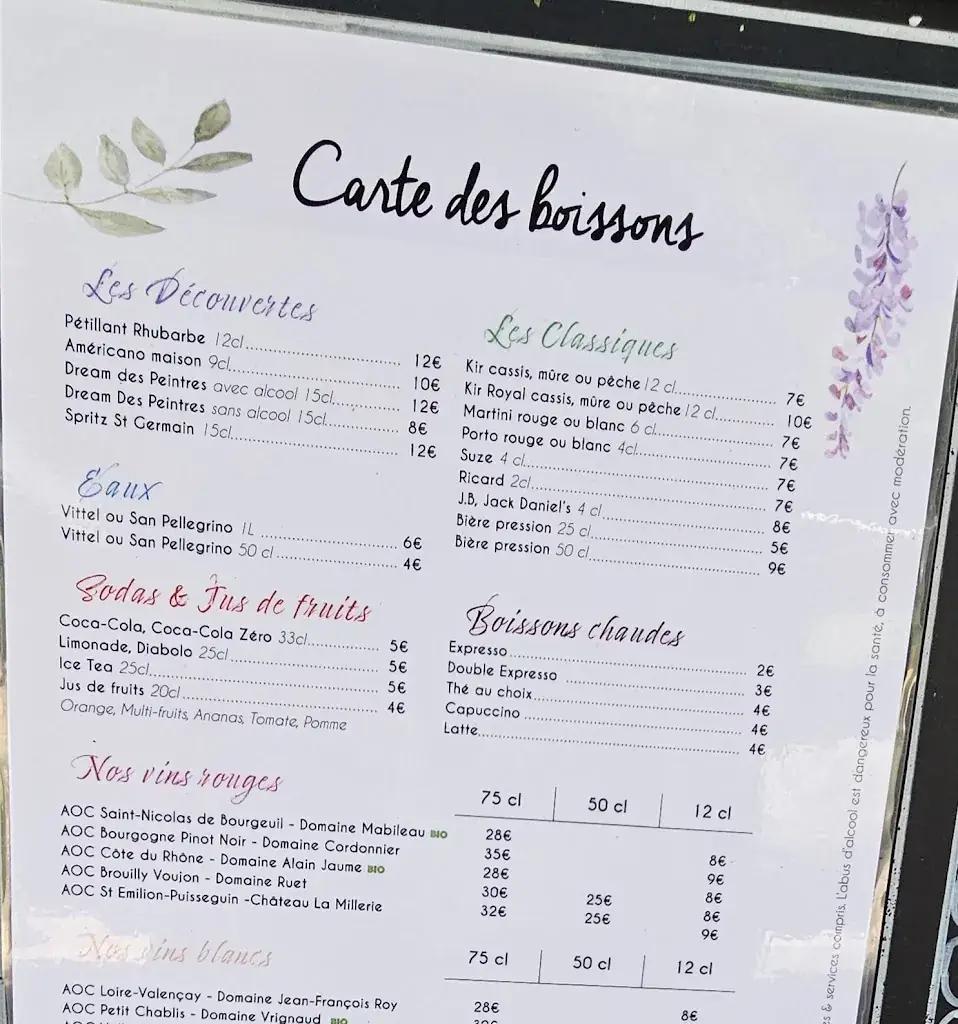 Carte des boissons
Les Découvertes
Pétillant Rhubarbe 12cl 12€
Américano maison 9cl 10€
Dream des Peintres avec alcool 15cl 12€
Dream Des Peintres sans alcool 15cl 8€
Spritz St Germain 15cl 12€
Eaux
Vittel ou San Pellegrino 1L 6€
Vittel ou San Pellegrino 50 cl 4€
Sodas & Jus de fruits
Coca-Cola, Coca-Cola Zéro 33cl 5€
Limonade, Diabolo 25cl 5€
Ice Tea 25cl 5€
Jus de fruits 20cl 4€
Orange, Multi-fruits, Ananas, Tomate, Pomme
Les Classiques
Kir cassis, mûre ou pêche 12 cl 7€
Kir Royal cassis, mûre ou pêche 12 cl 10€
Martini rouge ou blanc 6 cl 7€
Porto rouge ou blanc 4cl 7€
Suze 4 cl 7€
Ricard 2cl 7€
J.B, Jack Daniel's 4 cl 8€
Bière pression 25 cl 5€
Bière pression 50 cl 9€
Boissons chaudes
Expresso 2€
Double Expresso 3€
Thé au choix 4€
Capuccino 4€
Latte 4€
Nos vins rouges 75 cl 50 cl 12 cl
AOC Saint-Nicolas de Bourgeuil - Domaine Mabileau BIO 28€ 8€
AOC Bourgogne Pinot Noir - Domaine Cordonnier 35€ 9€
AOC Côte du Rhône - Domaine Alain Jaume BIO 28€ 8€
AOC Brouilly Voujon - Domaine Ruet 30€ 25€ 8€
AOC St Emilion-Puisseguin -Château La Millerie 32€ 25€ 9€
Nos vins blancs 75 cl 50 cl 12 cl
AOC Loire-Valençay - Domaine Jean-François Roy 28€ 8€
AOC Petit Chablis - Domaine Vrignaud BIO
& services compris. L'abus d'alcool est dangereux pour la santé, à consommer avec modération.